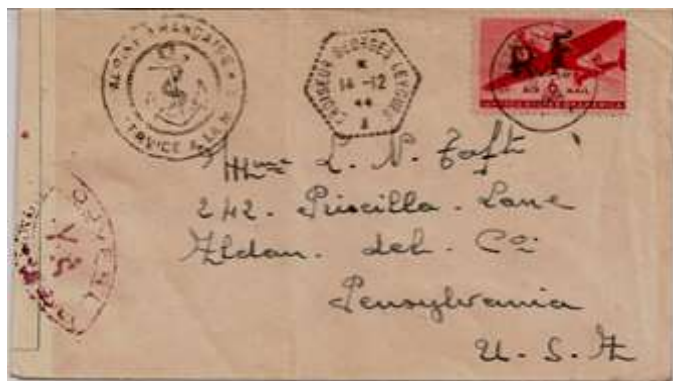 MARINE FRANÇAISE
SERVICE A LA MER
CROISEUR GEORGES LEYGUES
*
14-12
44
R F
6
AIR MAIL
Mme L. N. Taft
242. Priscilla. Lane
Aldan. del. Co:
Pensylvania
U. S. A